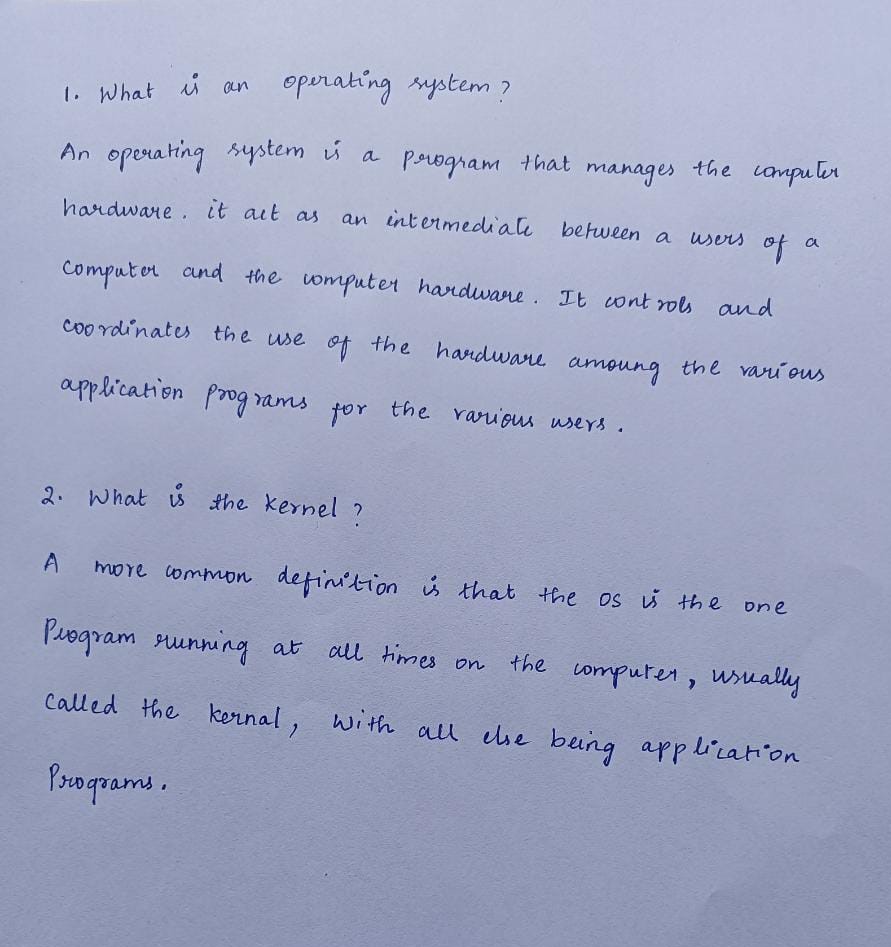 1. What is an operating system?
An operating system is a program that manages the computer
hardware. it act as an intermediate between a users of a
Computer and the computer hardware. It controls and
coordinates the use of the hardware amoung the various
application programs for the various users.
2. What is the kernel?
A more common definition is that the OS is the one
Program running at all times on the computer, usually
called the kernal, with all else being application
Programs.